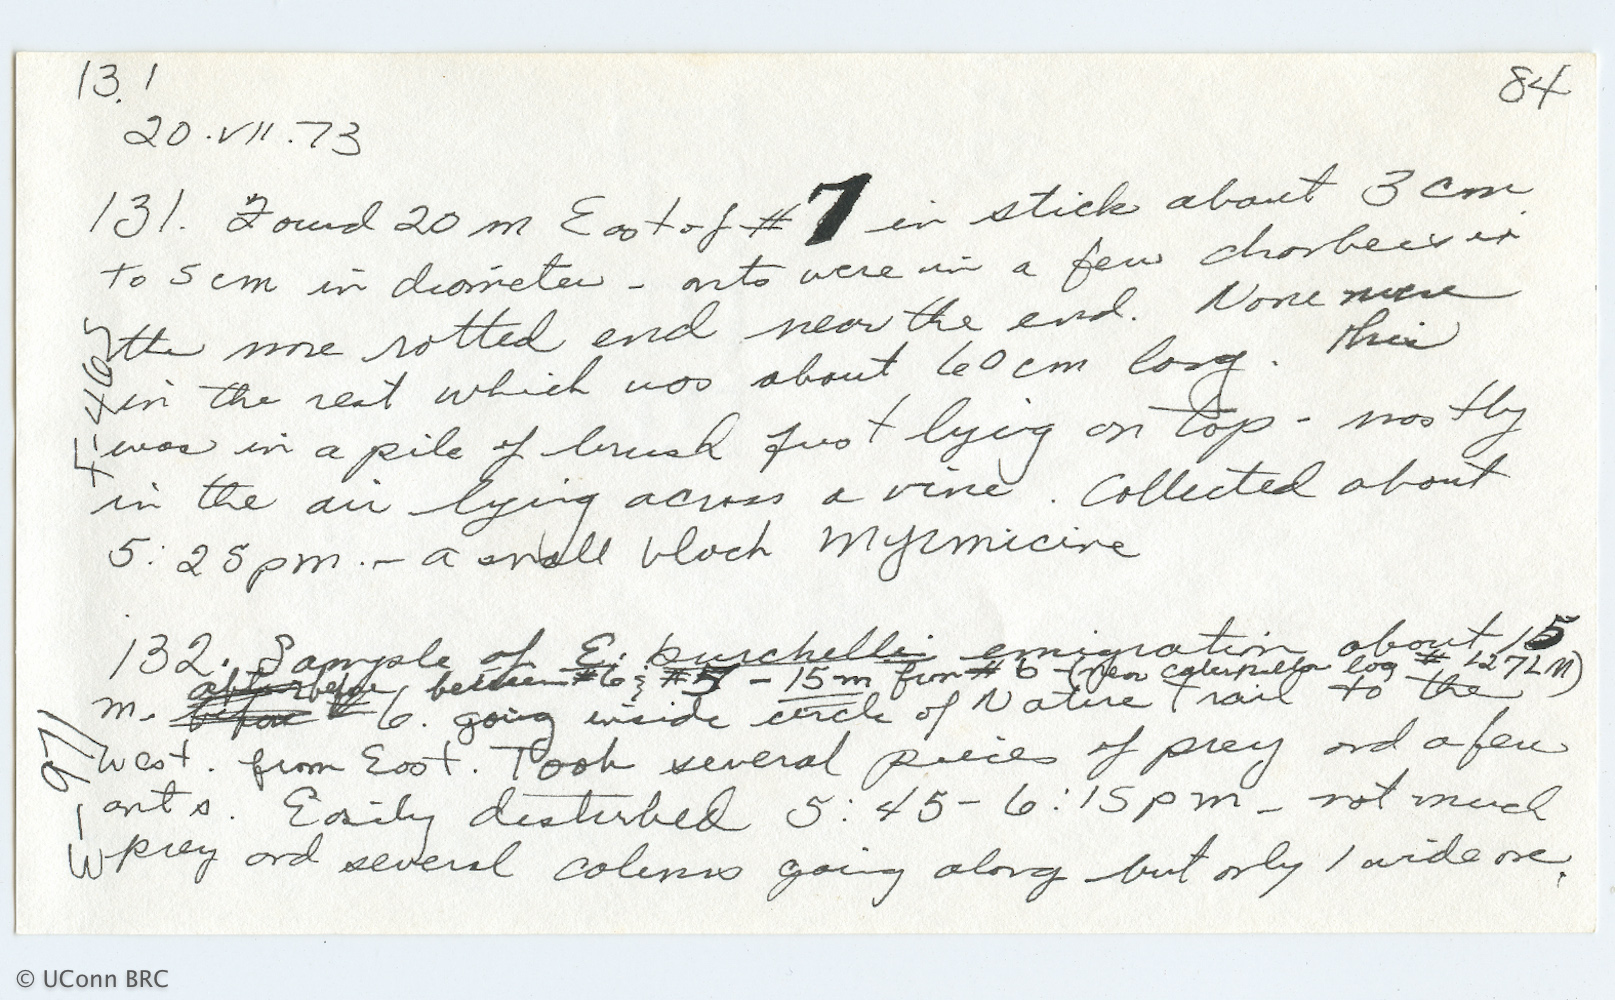 13.1
84
20.VII.73
131. Found 20 m East of #7 in stick about 3 cm
to 5 cm in diameter - ants were in a few chambers in
the more rotted end near the end. None were
in the rest which was about 60 cm long. This
was in a pile of brush just lying on top - mostly
in the air lying across a vine. Collected about
5:25 pm. - a small black Myrmicine
132. Sample of E. burchelli emigration about 15
between #6 & #5 - 15 m from #6 - (near caterpillar log # L27LM)
m. 6. going inside circle of Nature Trail to the
West. from East. Took several pieces of prey and a few
ants. Easily disturbed 5:45 - 6:15 pm - not much
prey and several columns going along but only 1 wide one.
E-971
© UConn BRC